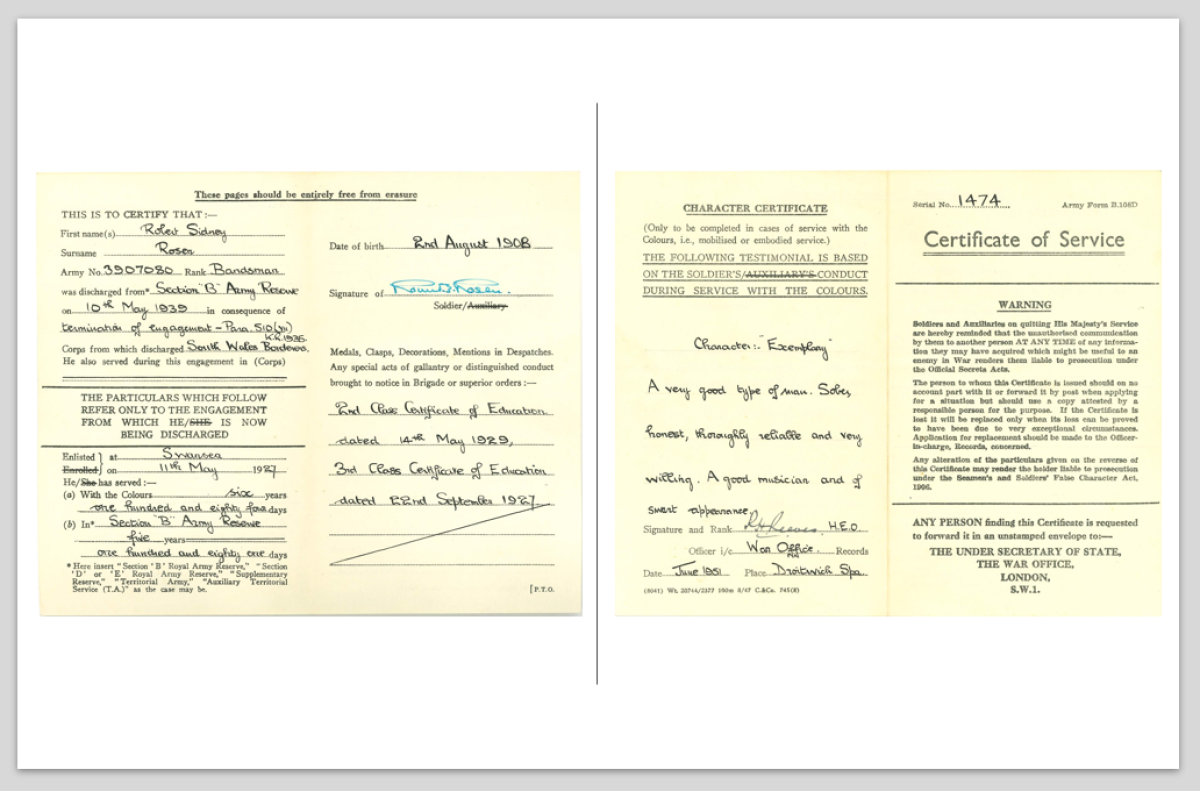 These pages should be entirely free from erasure
THIS IS TO CERTIFY THAT :—
First name(s) Robert Sidney
Surname Rosen
Army No. 3907080 Rank Bandsman
was discharged from* Section "B" Army Reserve
on 10th May 1939 in consequence of
termination of engagement - Para. 510 (xi)
K.R. 1935.
Corps from which discharged South Wales Borderers.
He also served during this engagement in (Corps)
THE PARTICULARS WHICH FOLLOW
REFER ONLY TO THE ENGAGEMENT
FROM WHICH HE/SHE IS NOW
BEING DISCHARGED
Enlisted } at Swansea
Enrolled } on 11th May 1927
He/She has served :—
(a) With the Colours six years
one hundred and eighty four days
(b) In* Section "B" Army Reserve
five years
one hundred and eighty one days
* Here insert "Section 'B' Royal Army Reserve," "Section
'D' or 'E' Royal Army Reserve," "Supplementary
Reserve," "Territorial Army," "Auxiliary Territorial
Service (T.A.)" as the case may be.
Date of birth 2nd August 1908
Signature of
Soldier/Auxiliary
Medals, Clasps, Decorations, Mentions in Despatches.
Any special acts of gallantry or distinguished conduct
brought to notice in Brigade or superior orders :—
2nd Class Certificate of Education
dated 14th May 1929,
3rd Class Certificate of Education
dated 22nd September 1927
[P.T.O.
CHARACTER CERTIFICATE
(Only to be completed in cases of service with the
Colours, i.e., mobilised or embodied service.)
THE FOLLOWING TESTIMONIAL IS BASED
ON THE SOLDIER'S/AUXILIARY'S CONDUCT
DURING SERVICE WITH THE COLOURS.
Character:- "Exemplary"
A very good type of man. Sober,
honest, thoroughly reliable and very
willing. A good musician and of
smart appearance.
Signature and Rank H.E.O.
Officer i/c War Office Records
Date June 1951 Place Droitwich Spa.
(8041) Wt. 20744/2377 160m 8/47 C.&Co. 745(8)
Serial No. 1474 Army Form B.108D
Certificate of Service
WARNING
Soldiers and Auxiliaries on quitting His Majesty's Service
are hereby reminded that the unauthorised communication
by them to another person AT ANY TIME of any informa-
tion they may have acquired which might be useful to an
enemy in War renders them liable to prosecution under
the Official Secrets Acts.
The person to whom this Certificate is issued should on no
account part with it or forward it by post when applying
for a situation but should use a copy attested by a
responsible person for the purpose. If the Certificate is
lost it will be replaced only when its loss can be proved
to have been due to very exceptional circumstances.
Application for replacement should be made to the Officer-
in-charge, Records, concerned.
Any alteration of the particulars given on the reverse of
this Certificate may render the holder liable to prosecution
under the Seamen's and Soldiers' False Character Act,
1906.
ANY PERSON finding this Certificate is requested
to forward it in an unstamped envelope to:—
THE UNDER SECRETARY OF STATE,
THE WAR OFFICE,
LONDON,
S.W.1.